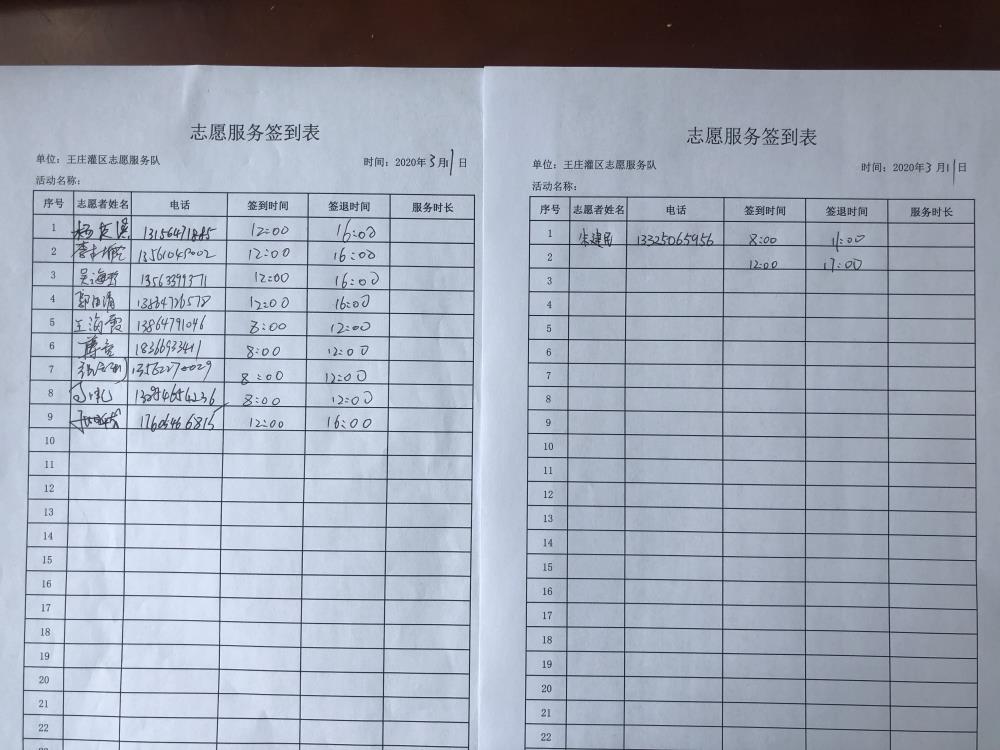 志愿服务签到表
单位：王庄灌区志愿服务队 时间：2020年3月11日
活动名称：
序号 志愿者姓名 电话 签到时间 签退时间 服务时长
1 13156471885 12:00 16:00
2 13561045002 12:00 16:00
3 吴海 13563399371 12:00 16:00
4 13864726578 12:00 16:00
5 王海霞 13864791046 8:00 12:00
6 18366933411 8:00 12:00
7 13562270029 8:00 12:00
8 8:00 12:00
9 17605466815 12:00 16:00
10
11
12
13
14
15
16
17
18
19
20
21
22
志愿服务签到表
单位：王庄灌区志愿服务队 时间：2020年3月11日
活动名称：
序号 志愿者姓名 电话 签到时间 签退时间 服务时长
1 朱建民 13325065956 8:00 11:00
2 12:00 17:00
3
4
5
6
7
8
9
10
11
12
13
14
15
16
17
18
19
20
21
22